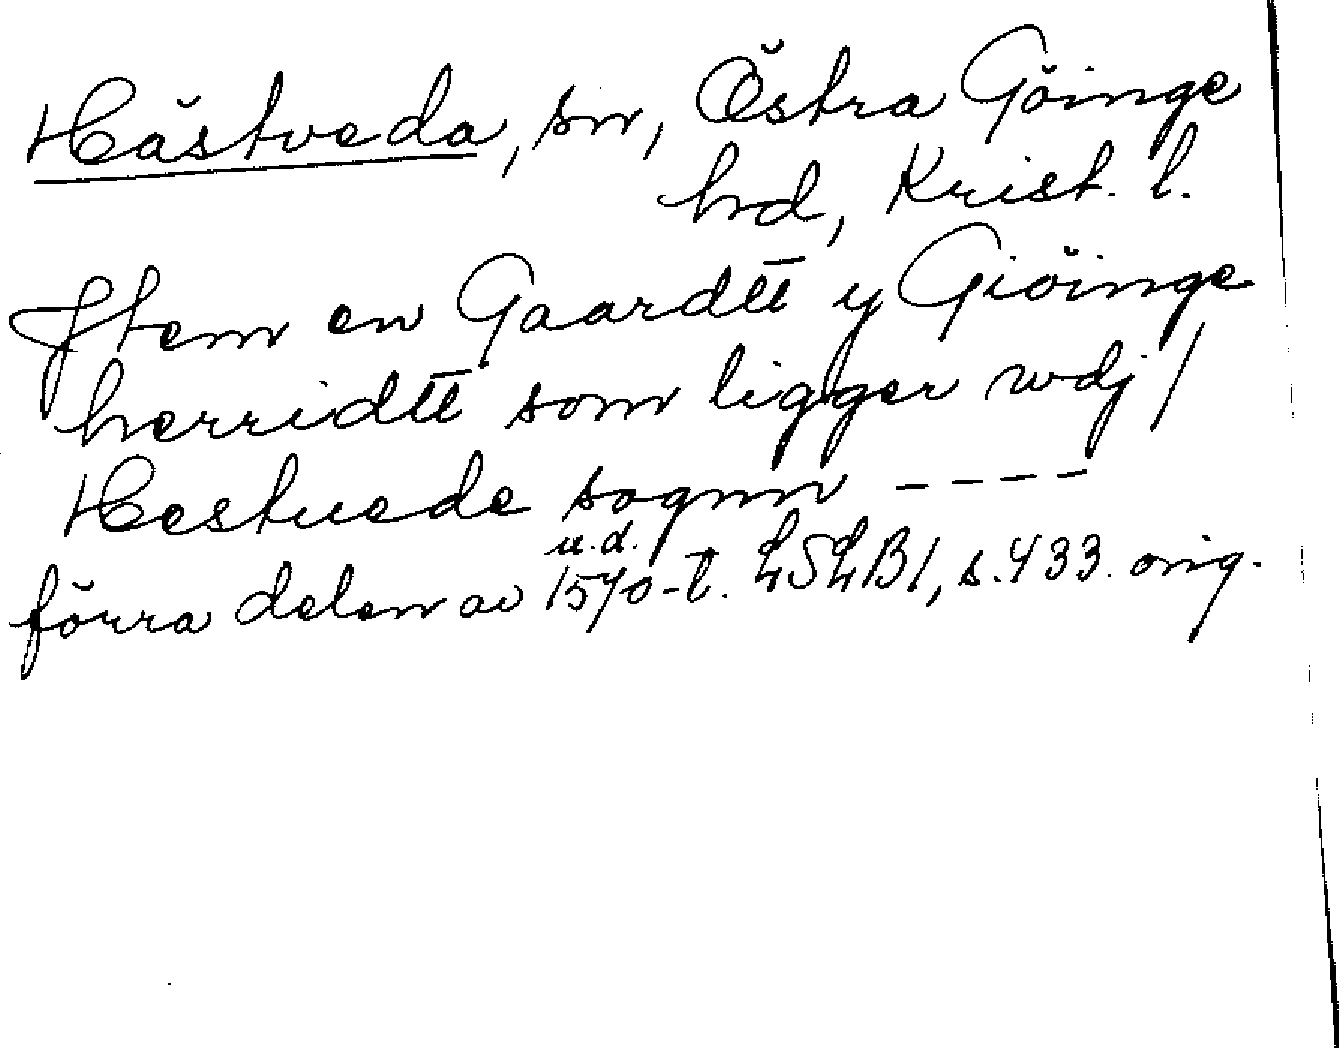 Hästveda, sn, Östra Göinge
hrd, Krist. l.
Jtem en Gaardtt y Giöinge
herridtt som ligger wdj /
Hestuede sognn ----
u.d.
förra delen av 1570-t. LSLB1, s. 433. orig.